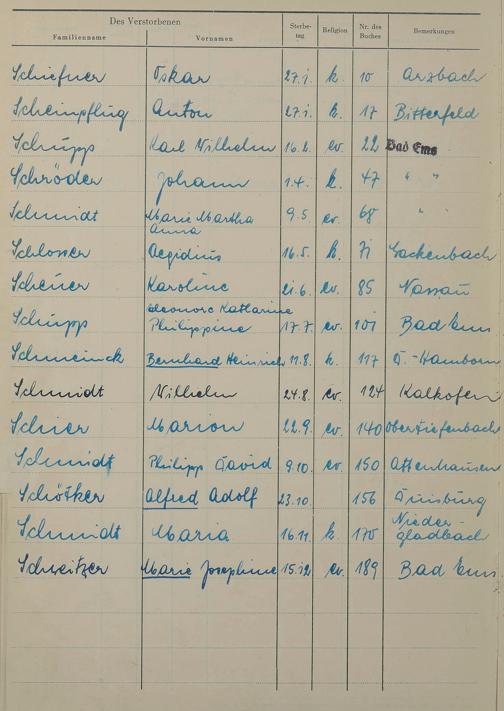 Des Verstorbenen
Familienname Vornamen Sterbe-tag Religion Nr. des Buches Bemerkungen
Schiefner Oskar 27.1. k. 10 Arzbach
Scheinpflug Anton 27.1. k. 17 Bitterfeld
Schupp Karl Wilhelm 16.2. ev. 22 Bad Ems
Schröder Johann 1.4. k. 47 " "
Schmidt Marie Martha Anna 9.5. ev. 68 " "
Schlosser Aegidius 16.5. k. 71 Gackenbach
Scheuer Karoline 21.6. ev. 85 Nassau
Schupp Eleonore Katharine Philippine 17.7. ev. 101 Bad Ems
Schmeinck Bernhard Heinrich 11.8. k. 117 D.-Hamborn
Schmidt Wilhelm 24.8. ev. 124 Kalkofen
Schier Marion 22.9. ev. 140 Obertiefenbach
Schmidt Philipp David 9.10. ev. 150 Attenhausen
Schötker Alfred Adolf 23.10. 156 Duisburg
Schmidt Maria 16.11. k. 170 Nieder-gladbach
Schweitzer Marie Josephine 15.12 ev. 189 Bad Ems